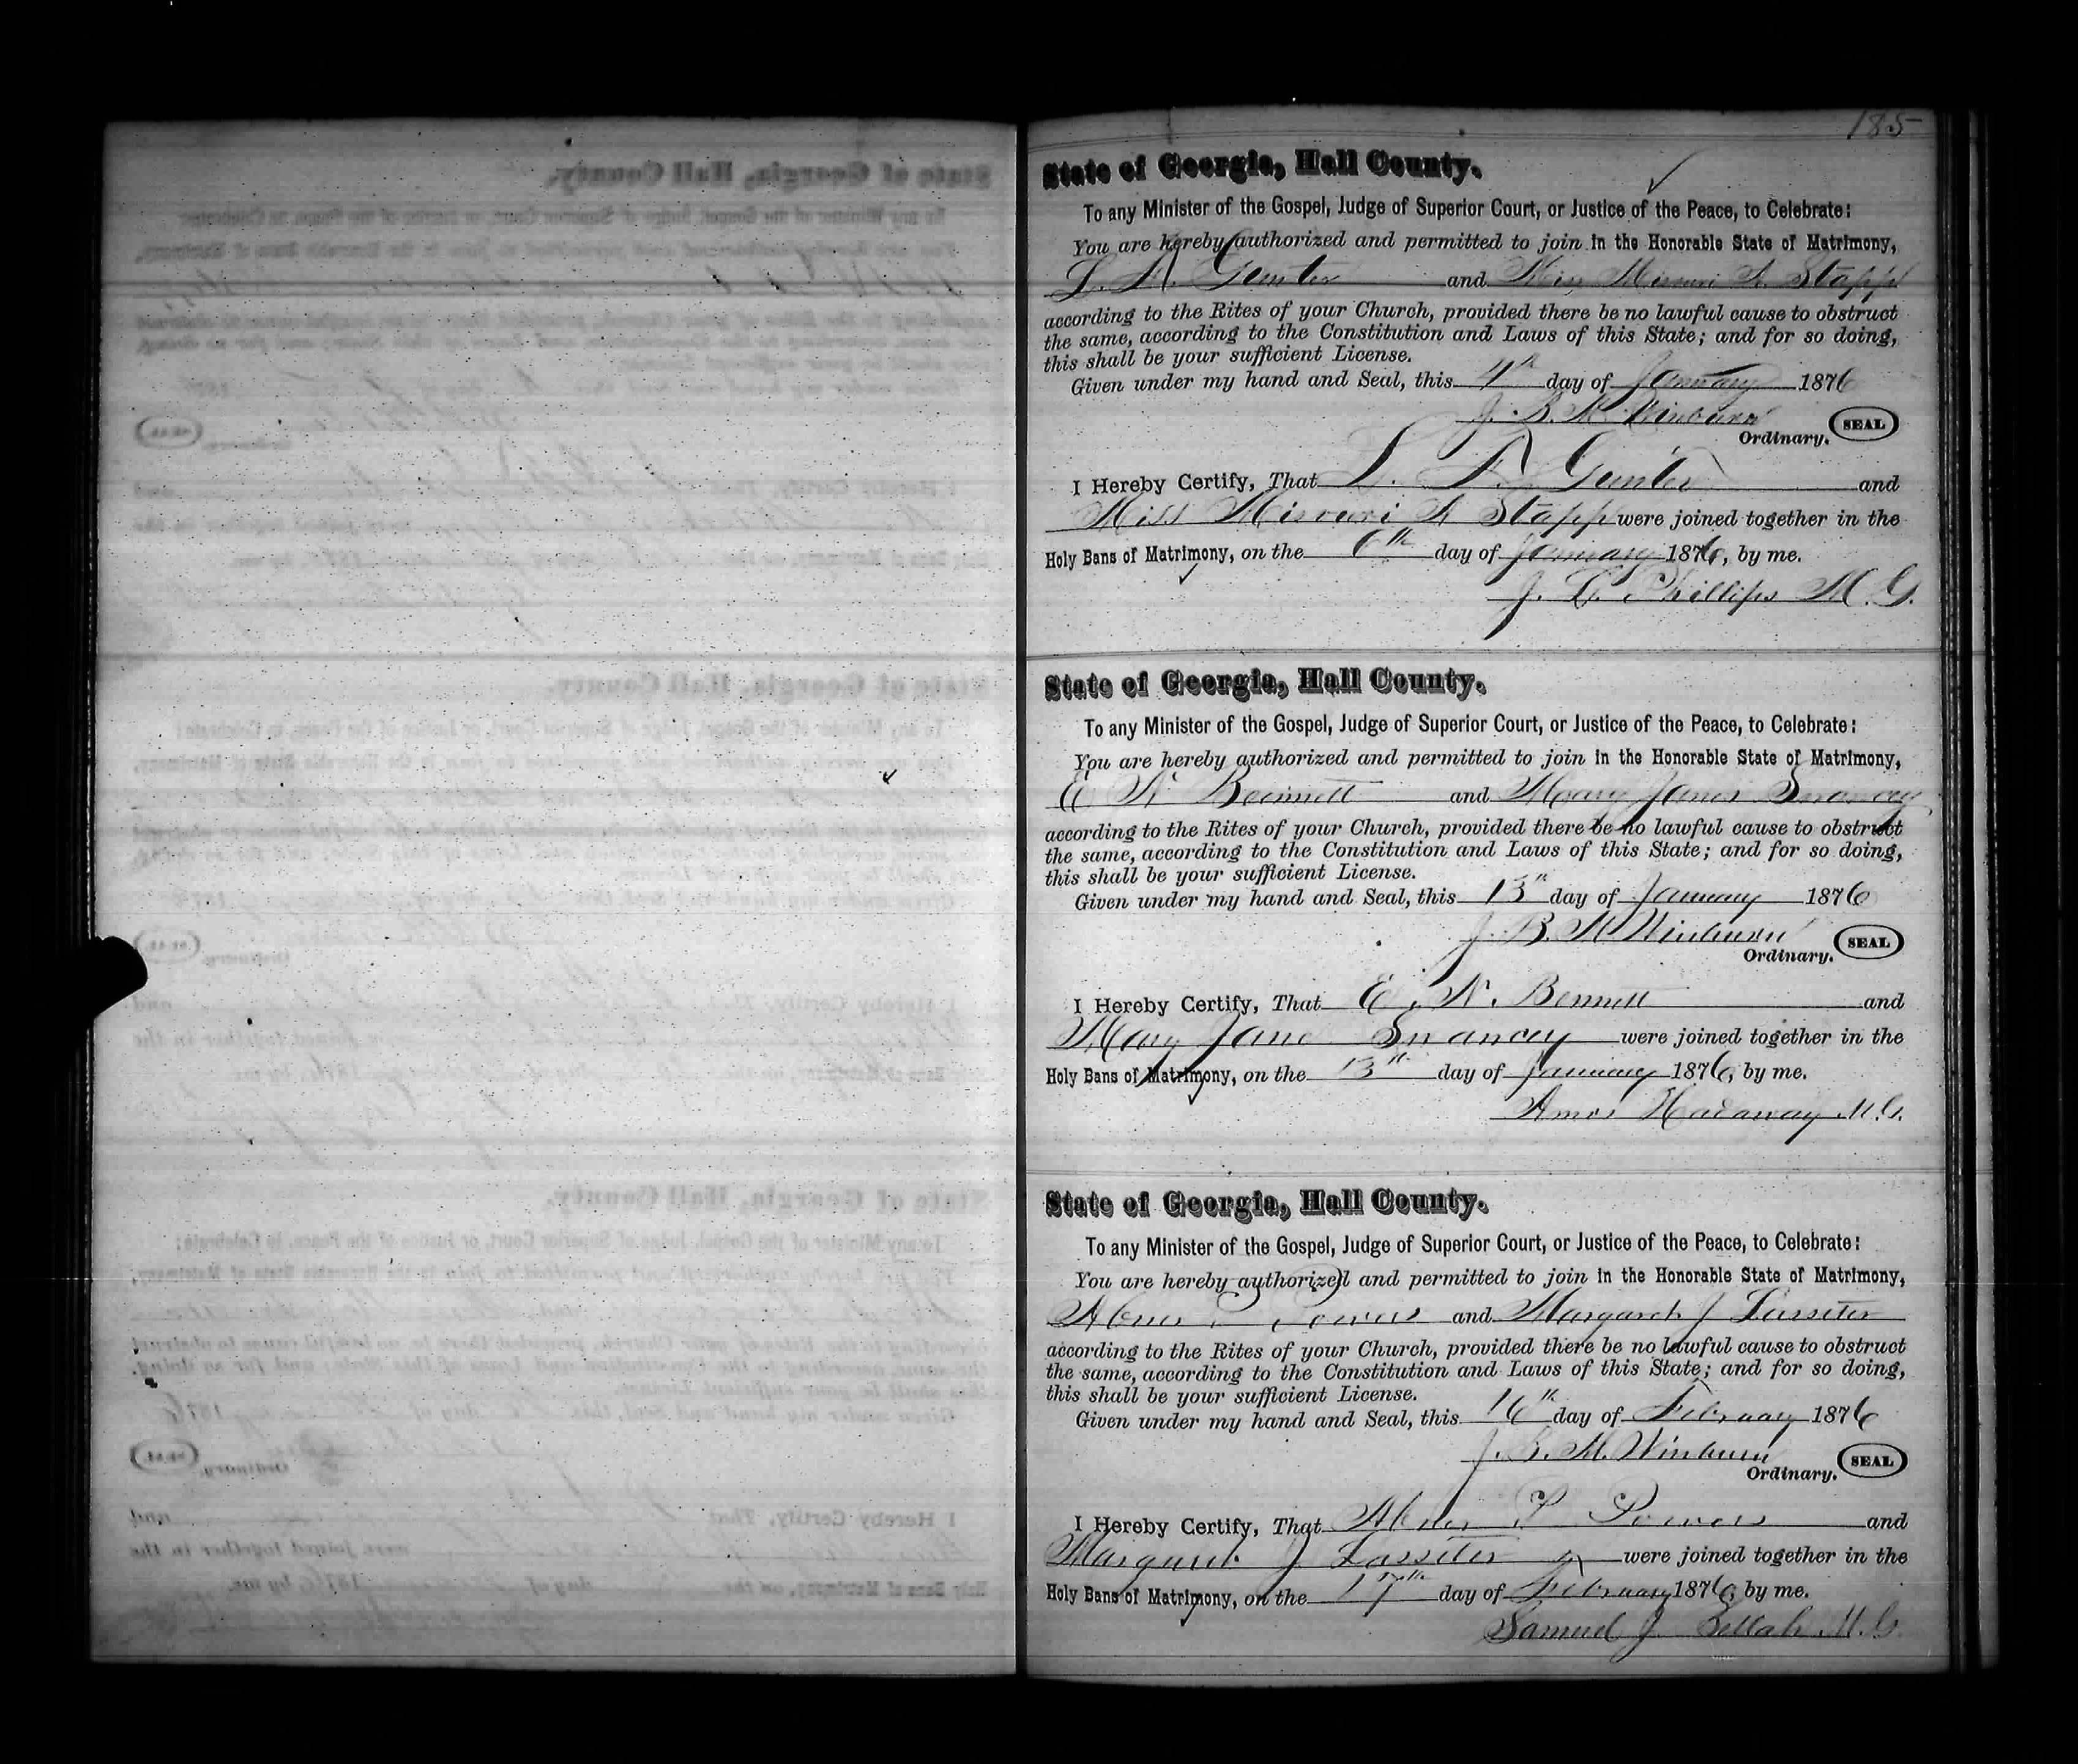 185
State of Georgia, Hall County.
To any Minister of the Gospel, Judge of Superior Court, or Justice of the Peace, to Celebrate:
You are hereby authorized and permitted to join in the Honorable State of Matrimony,
L. F. Gunter and Miss Missouri A. Stapp
according to the Rites of your Church, provided there be no lawful cause to obstruct
the same, according to the Constitution and Laws of this State; and for so doing,
this shall be your sufficient License.
Given under my hand and Seal, this 4th day of January 1876
J. B. M. Winburn SEAL
Ordinary.
I Hereby Certify, That L. F. Gunter and
Miss Missouri A Stapp were joined together in the
Holy Bans of Matrimony, on the 6th day of January 1876, by me.
J. L. Phillips M. G.
State of Georgia, Hall County.
To any Minister of the Gospel, Judge of Superior Court, or Justice of the Peace, to Celebrate:
You are hereby authorized and permitted to join in the Honorable State of Matrimony,
E N Bennett and Mary Jane
according to the Rites of your Church, provided there be no lawful cause to obstruct
the same, according to the Constitution and Laws of this State; and for so doing,
this shall be your sufficient License.
Given under my hand and Seal, this 13th day of January 1876
J. B. M Winburn SEAL
Ordinary.
I Hereby Certify, That E. N. Bennett and
Mary Jane were joined together in the
Holy Bans of Matrimony, on the 13th day of January 1876, by me.
Amos Hadaway M. G.
State of Georgia, Hall County.
To any Minister of the Gospel, Judge of Superior Court, or Justice of the Peace, to Celebrate:
You are hereby authorized and permitted to join in the Honorable State of Matrimony,
Abner P Powers and Margaret J Lassiter
according to the Rites of your Church, provided there be no lawful cause to obstruct
the same, according to the Constitution and Laws of this State; and for so doing,
this shall be your sufficient License.
Given under my hand and Seal, this 16th day of February 1876
J. B. M. Winburn SEAL
Ordinary.
I Hereby Certify, That Abner P Powers and
Margaret J Lassiter were joined together in the
Holy Bans of Matrimony, on the 17th day of February 1876, by me.
Samuel J. Bellah M. G.